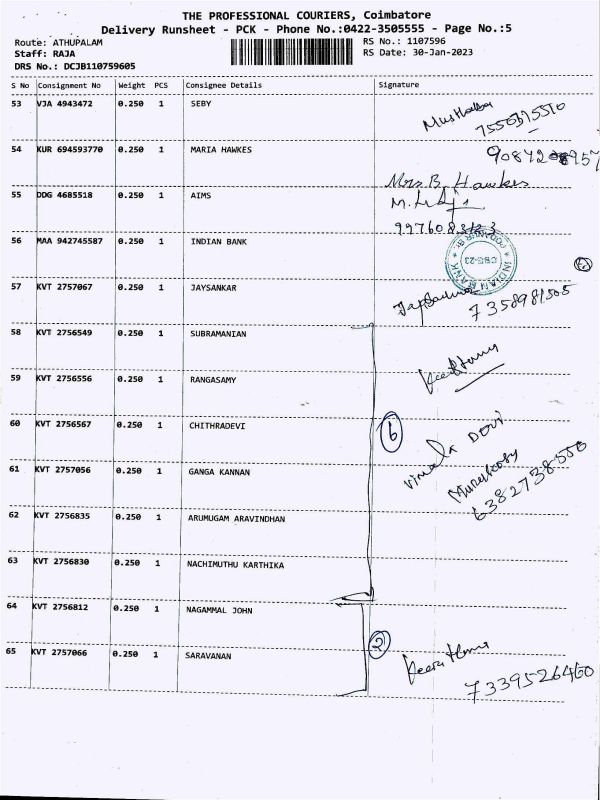 THE PROFESSIONAL COURIERS, Coimbatore
Delivery Runsheet - PCK - Phone No.:0422-3505555 - Page No.:5
Route: ATHUPALAM
Staff: RAJA
DRS No.: DCJB110759605
RS No.: 1107596
RS Date: 30-Jan-2023
S No Consignment No Weight PCS Consignee Details Signature
53 VJA 4943472 0.250 1 SEBY
7550375510
54 KUR 694593770 0.250 1 MARIA HAWKES
Mrs B. Hawkes
55 DDG 4685518 0.250 1 AIMS
56 MAA 942745587 0.250 1 INDIAN BANK
INDIAN BANK
57 KVT 2757067 0.250 1 JAYSANKAR
7358981505
58 KVT 2756549 0.250 1 SUBRAMANIAN
59 KVT 2756556 0.250 1 RANGASAMY
60 KVT 2756567 0.250 1 CHITHRADEVI
6
Vimala DEVI
61 KVT 2757056 0.250 1 GANGA KANNAN
6382738550
62 KVT 2756835 0.250 1 ARUMUGAM ARAVINDHAN
63 KVT 2756830 0.250 1 NACHIMUTHU KARTHIKA
64 KVT 2756812 0.250 1 NAGAMMAL JOHN
2
65 KVT 2757066 0.250 1 SARAVANAN
7339526460